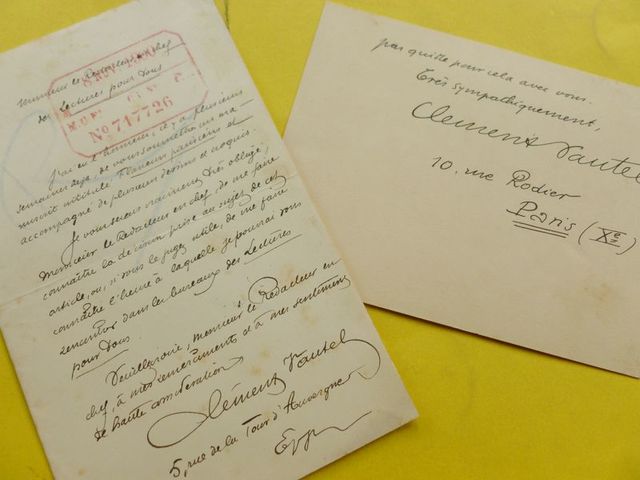 Monsieur le Rédacteur en chef
des Lectures pour Tous
No 717726
J'ai eu l'honneur, il y a plusieurs
semaines déjà de vous soumettre un ma-
nuscrit intitulé Flaneurs parisiens et
accompagné de plusieurs dessins et croquis.
Je vous serais vraiment très obligé,
Monsieur le Rédacteur en chef, de me faire
connaître la décision prise au sujet de cet
article, ou, si vous le jugez utile, de me faire
connaître l'heure à laquelle je pourrai vous
rencontrer dans les bureaux des Lectures
pour Tous.
Veuillez croire, monsieur le Rédacteur en
chef, à mes remerciements et à mes sentiments
de haute considération
Clément Vautel
5, rue de la Tour d'Auvergne
pas quitte pour cela avec vous.
Très sympathiquement,
Clément Vautel
10, rue Rodier
Paris (Xe)